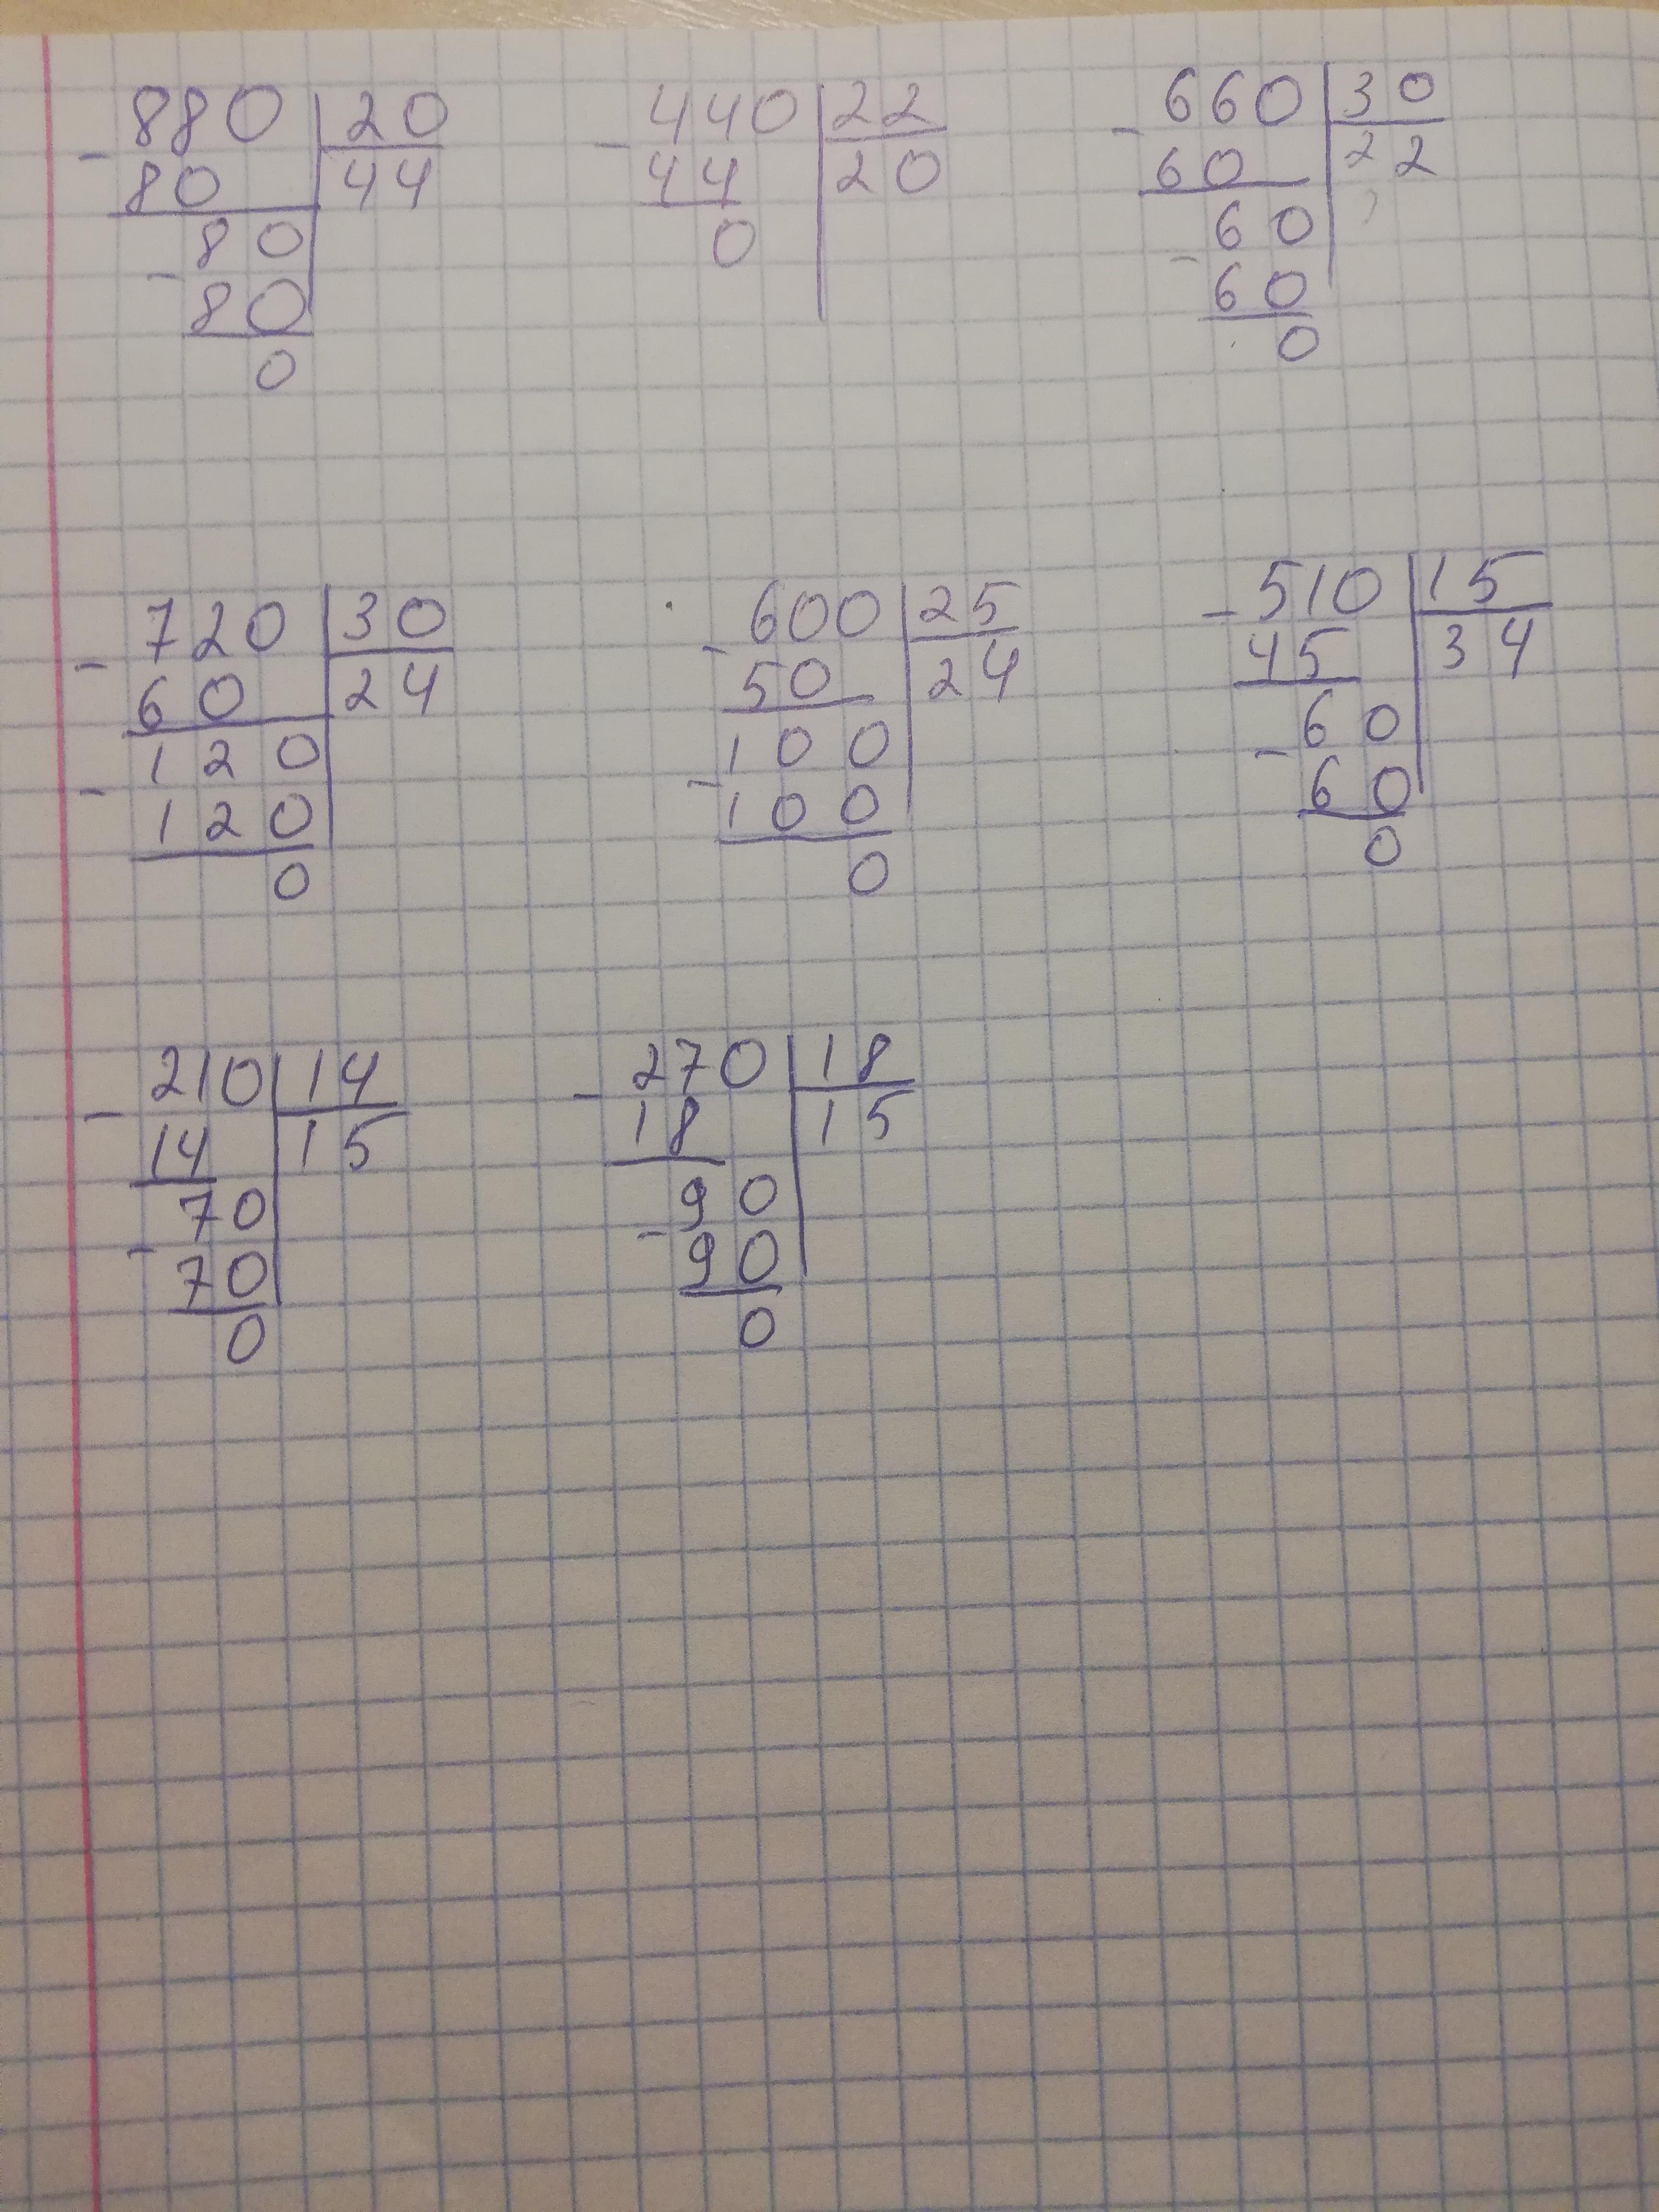 880 20
- 80 44
80
- 80
0
440 22
- 44 20
0
660 30
- 60 22
60
- 60
0
720 30
- 60 24
120
- 120
0
600 25
- 50 24
100
- 100
0
- 510 15
45 34
60
- 60
0
210 14
- 14 15
70
- 70
0
- 270 18
18 15
90
- 90
0